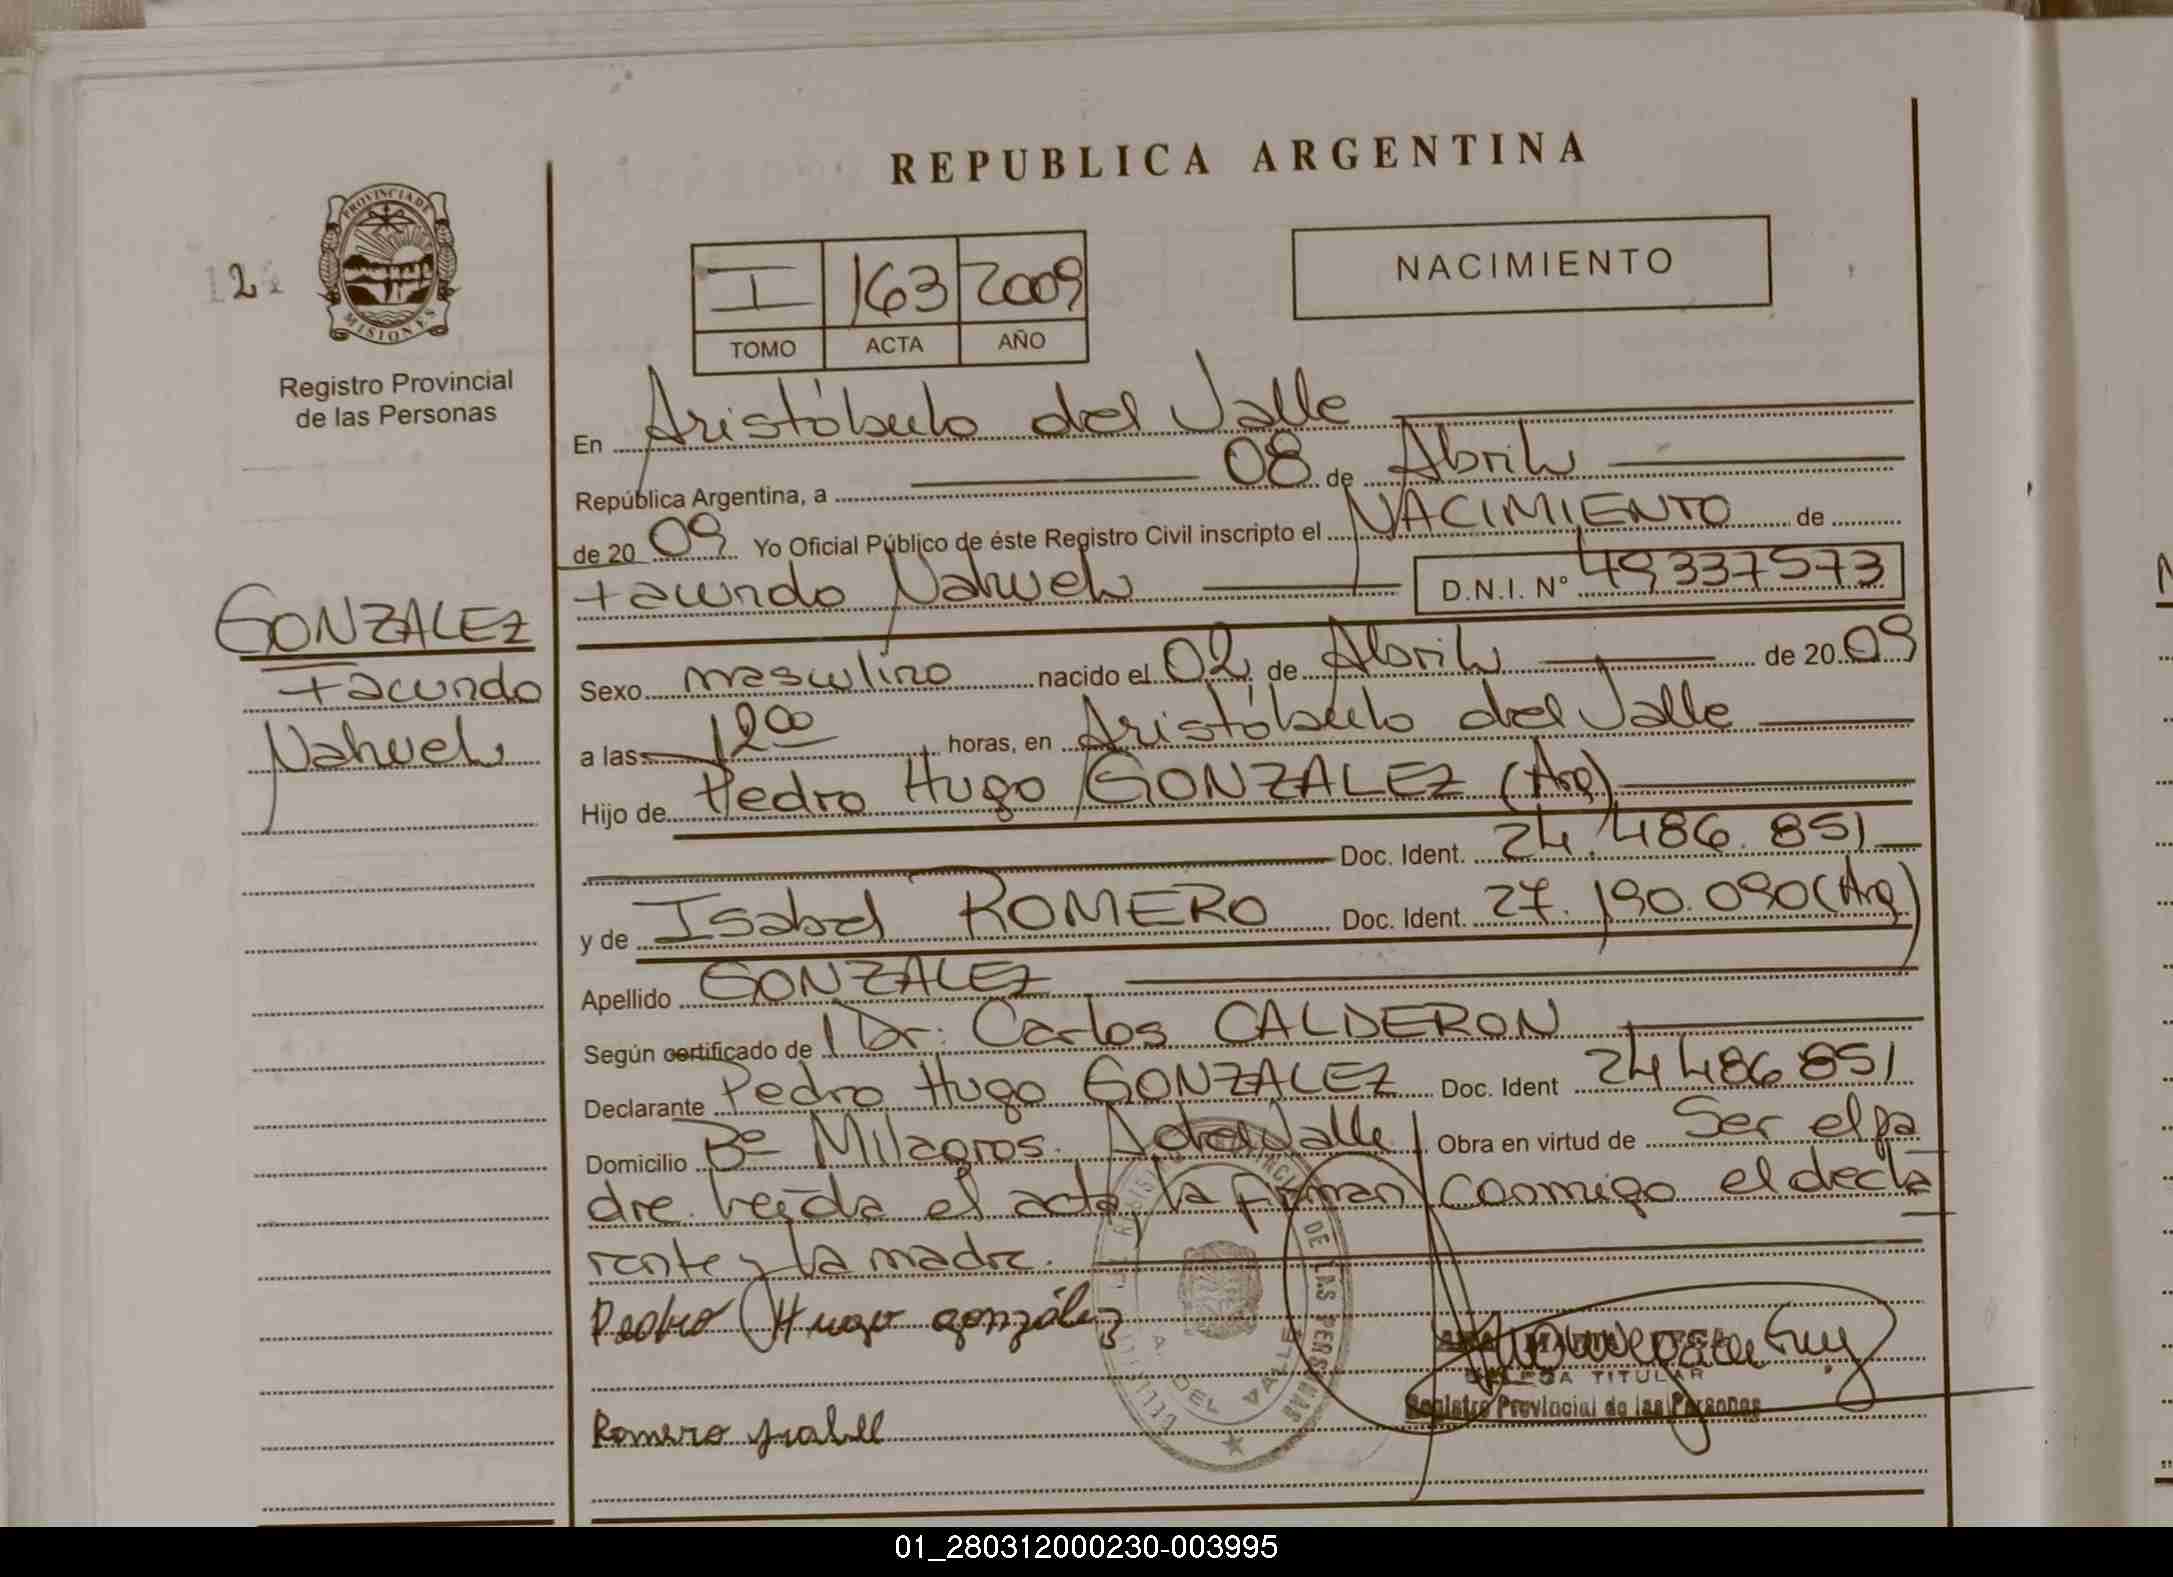 REPUBLICA ARGENTINA
PROVINCIA DE
MISIONES
Registro Provincial
de las Personas
I 163 2009
TOMO ACTA AÑO
NACIMIENTO
En Aristóbulo del Valle
República Argentina, a 08 de Abril
de 20 09 Yo Oficial Público de éste Registro Civil inscripto el NACIMIENTO de
Facundo Nahuel D.N.I. Nº 49337573
GONZALEZ
Facundo
Nahuel
Sexo masculino nacido el 02 de Abril de 20 09
a las 12 00 horas, en Aristóbulo del Valle
Hijo de Pedro Hugo GONZALEZ (Arg)
Doc. Ident. 24.486.851
y de Isabel ROMERO Doc. Ident. 27.190.090 (Arg)
Apellido GONZALEZ
Según certificado de Dr. Carlos CALDERON
Declarante Pedro Hugo GONZALEZ Doc. Ident 24 486 851
Domicilio Bº Milagros. A del Valle Obra en virtud de Ser el pa
dre. Leída el acta, la firman conmigo el decla
rante y la madre.
Pedro Hugo gonzález
TITULAR
Registro Provincial de las Personas
Romero Isabel
DE LAS PERSONAS
A. DEL VALLE
01_280312000230-003995